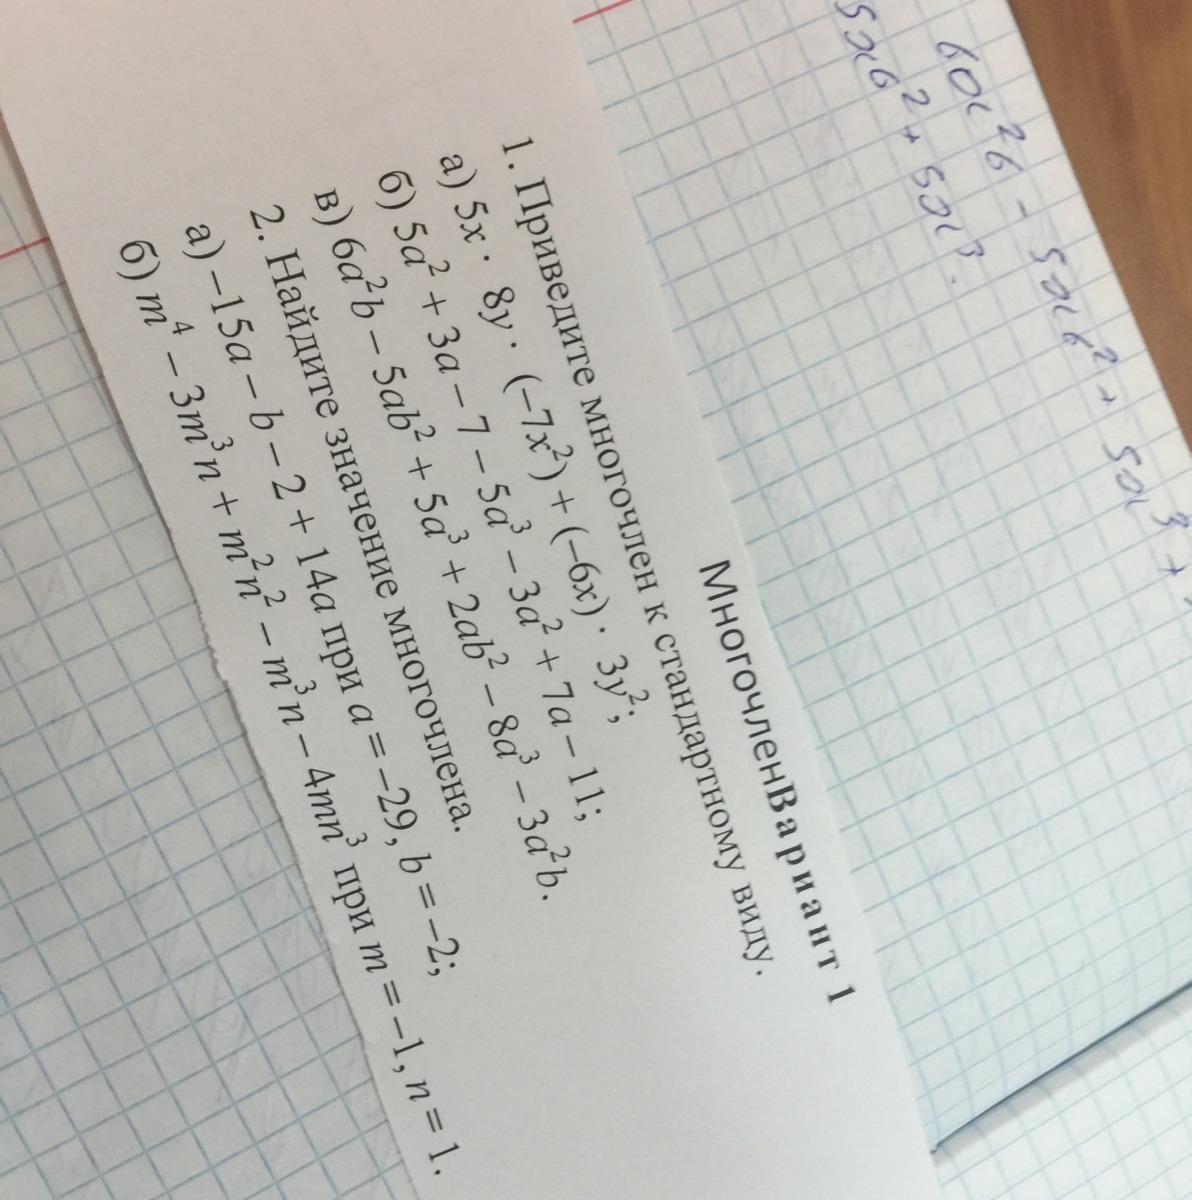 6a²b - 5ab² + 5a³ +
5ab² + 5a³.
МногочленВариант 1
1. Приведите многочлен к стандартному виду.
а) 5x · 8y · (–7x²) + (–6x) · 3y²;
б) 5a² + 3a – 7 – 5a³ – 3a² + 7a – 11;
в) 6a²b – 5ab² + 5a³ + 2ab² – 8a³ – 3a²b.
2. Найдите значение многочлена.
а) –15a – b – 2 + 14a при a = –29, b = –2;
б) m⁴ – 3m³n + m²n² – m³n – 4mn³ при m = –1, n = 1.